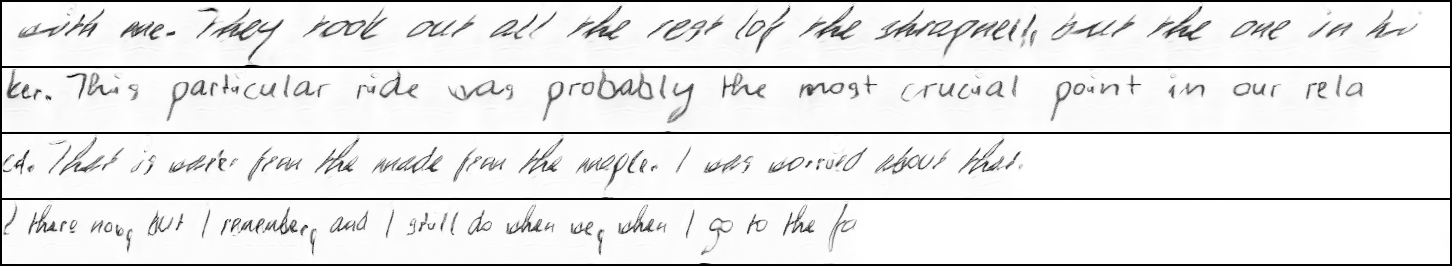 with me. They took out all the rest lof the shrapnel, but the one in hi
ker. This particular ride was probably the most crucial point in our rela
ed. That is water from the made from the maple. I was worried about that.
d there now, but I remember, and I still do when we, when I go to the fo